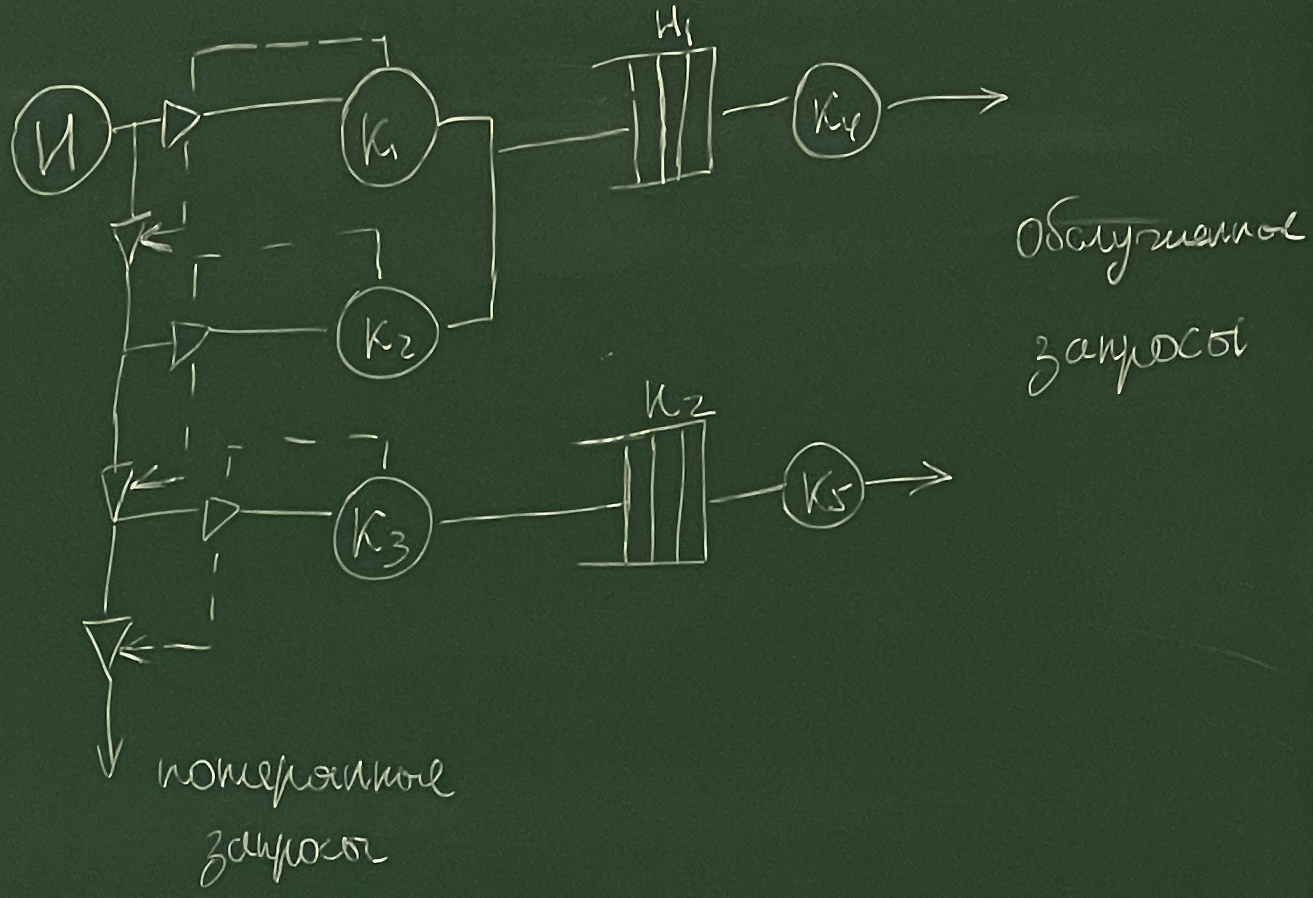 И
К1
Н1
К4
Обслуженные
запросы
К2
К3
Н2
К5
потерянные
запросы